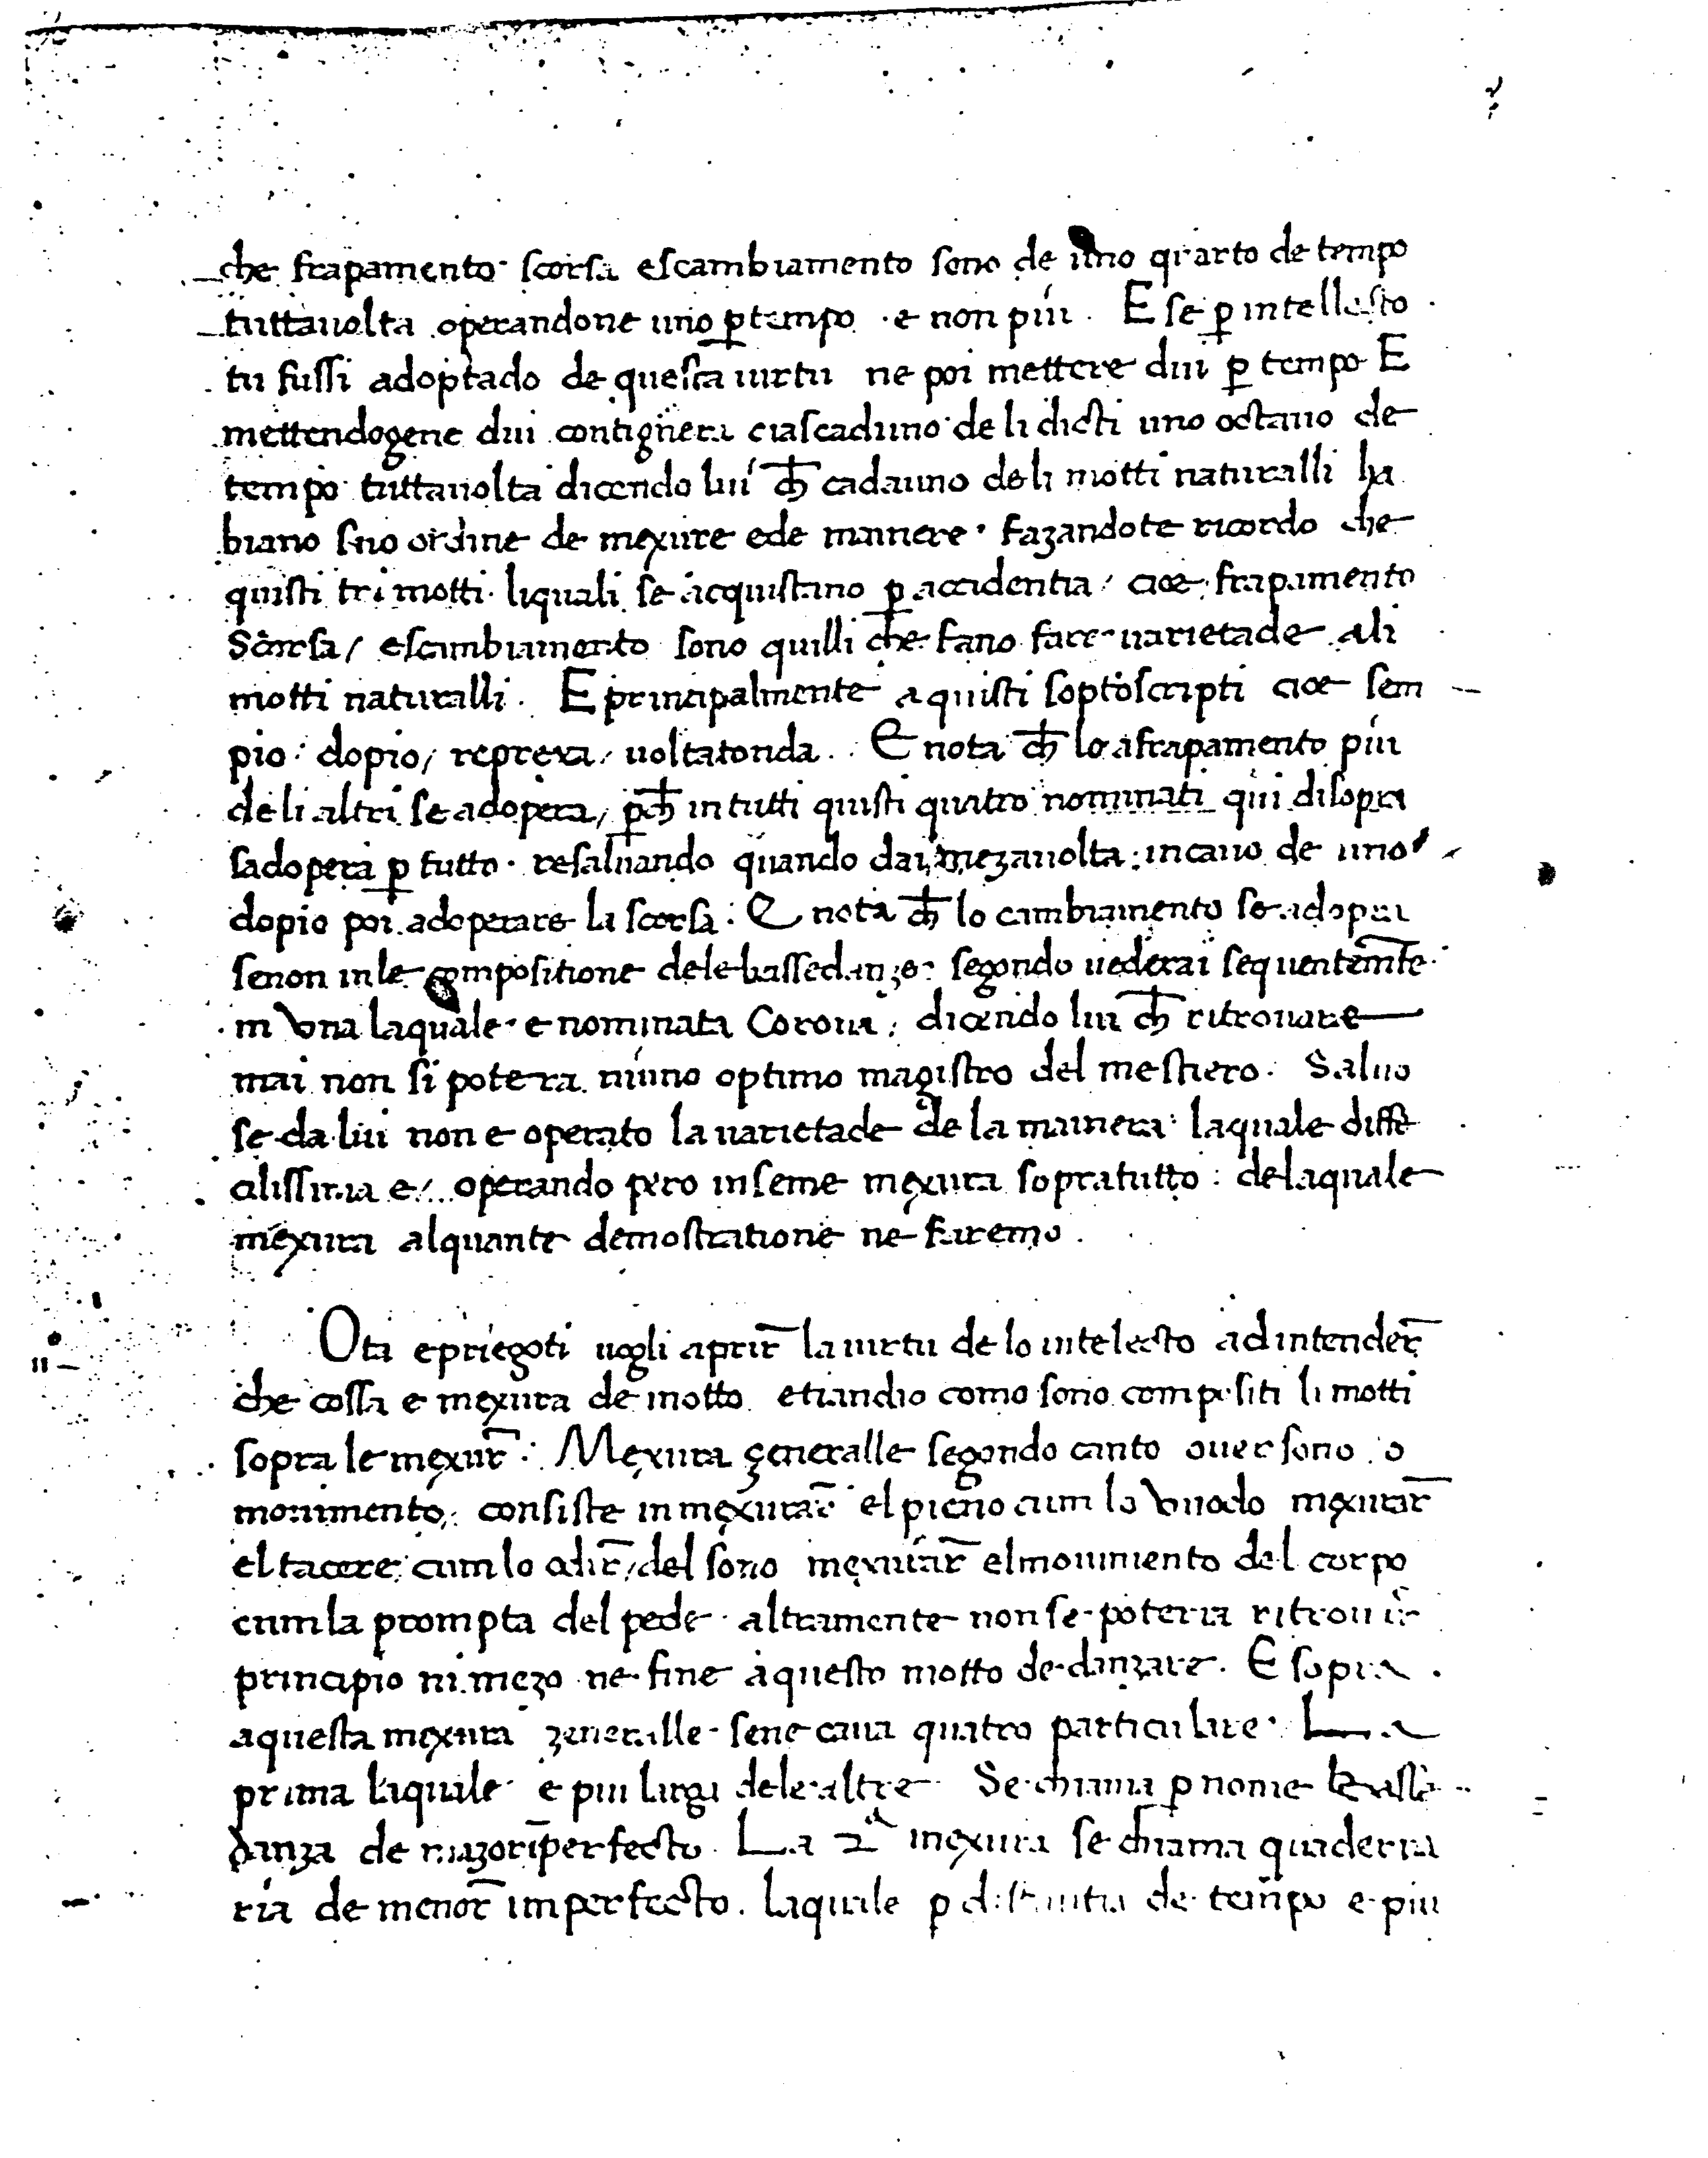 che frapamento · scorsa escambiamento sono de uno quarto de tempo
tuttauolta operandone uno ꝑ tempo · e non piu . E se ꝑ intellecto
tu fussi adoptado de questa uirtu ne poi mettere dui ꝑ tempo E
mettendogene dui contignera ciascaduno de li dicti uno octauo de
tempo tuttauolta dicendo lui ch̄ cadauno de li motti naturalli ha
biano suo ordine de mexure e de mainere · fazandote ricordo che
quisti tri motti · liquali se acquistano ꝑ accidentia / cioe frapamento
Scorsa / escambiamento sono quilli che fano fare uarietade ali
motti naturalli . E principalmente a quisti soptoscripti cioe sem
pio : dopio / reprexa / uoltatonda . E nota ch̄ lo afrapamento piu
de li altri se adopera / ꝑch̄ in tutti quisti quatro nominati qui disopra
sadopera ꝑ tutto · resaluando quando dai mezauolta : in cauo de uno
dopio poi adoperare la scorsa : E nota ch̄ lo cambiamento se adopra
senon in le compositione de le bassedanze : segondo uederai sequentem̄te
in una laquale · e nominata Corona ; dicendo lui ch̄ ritrouare
mai non si potera niuno optimo magistro del mestiero · Saluo
se da lui non e operato la uarietade de la mainera laquale diffi
cilissima e / operando pero inseme mexura sopratutto : de laquale
mexura alquante demostratione ne faremo .
Ota e priegoti uogli aprir̄ la uirtu de lo intelecto ad intender̄
che cossa e mexura de motto etiandio como sono compositi li motti
sopra le mexur̄ : Mexura generalle segondo canto ouer sono o
mouimento ; consiste in mexurar̄ el pieno cum lo vuodo mexurar̄
el tacere cum lo odir̄ / del sono mexurar̄ el mouimento del corpo
cum la prompta del pede · altramente non se poteria ritrouar̄
principio ni mezo ne fine a questo motto de danzare . E sopra
a questa mexura zeneralle sene caua quatro particulare · La
prima laquale e piu larga de le altre Se chiama ꝑ nome bassa
danza de mazor īperfecto . La 2ª mexura se chiama quaderna
ria de menor̄ imperfecto . laquale ꝑ distantia de tempo e piu